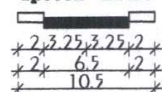 2 3.25 3.25 2
2 6.5 2
10.5